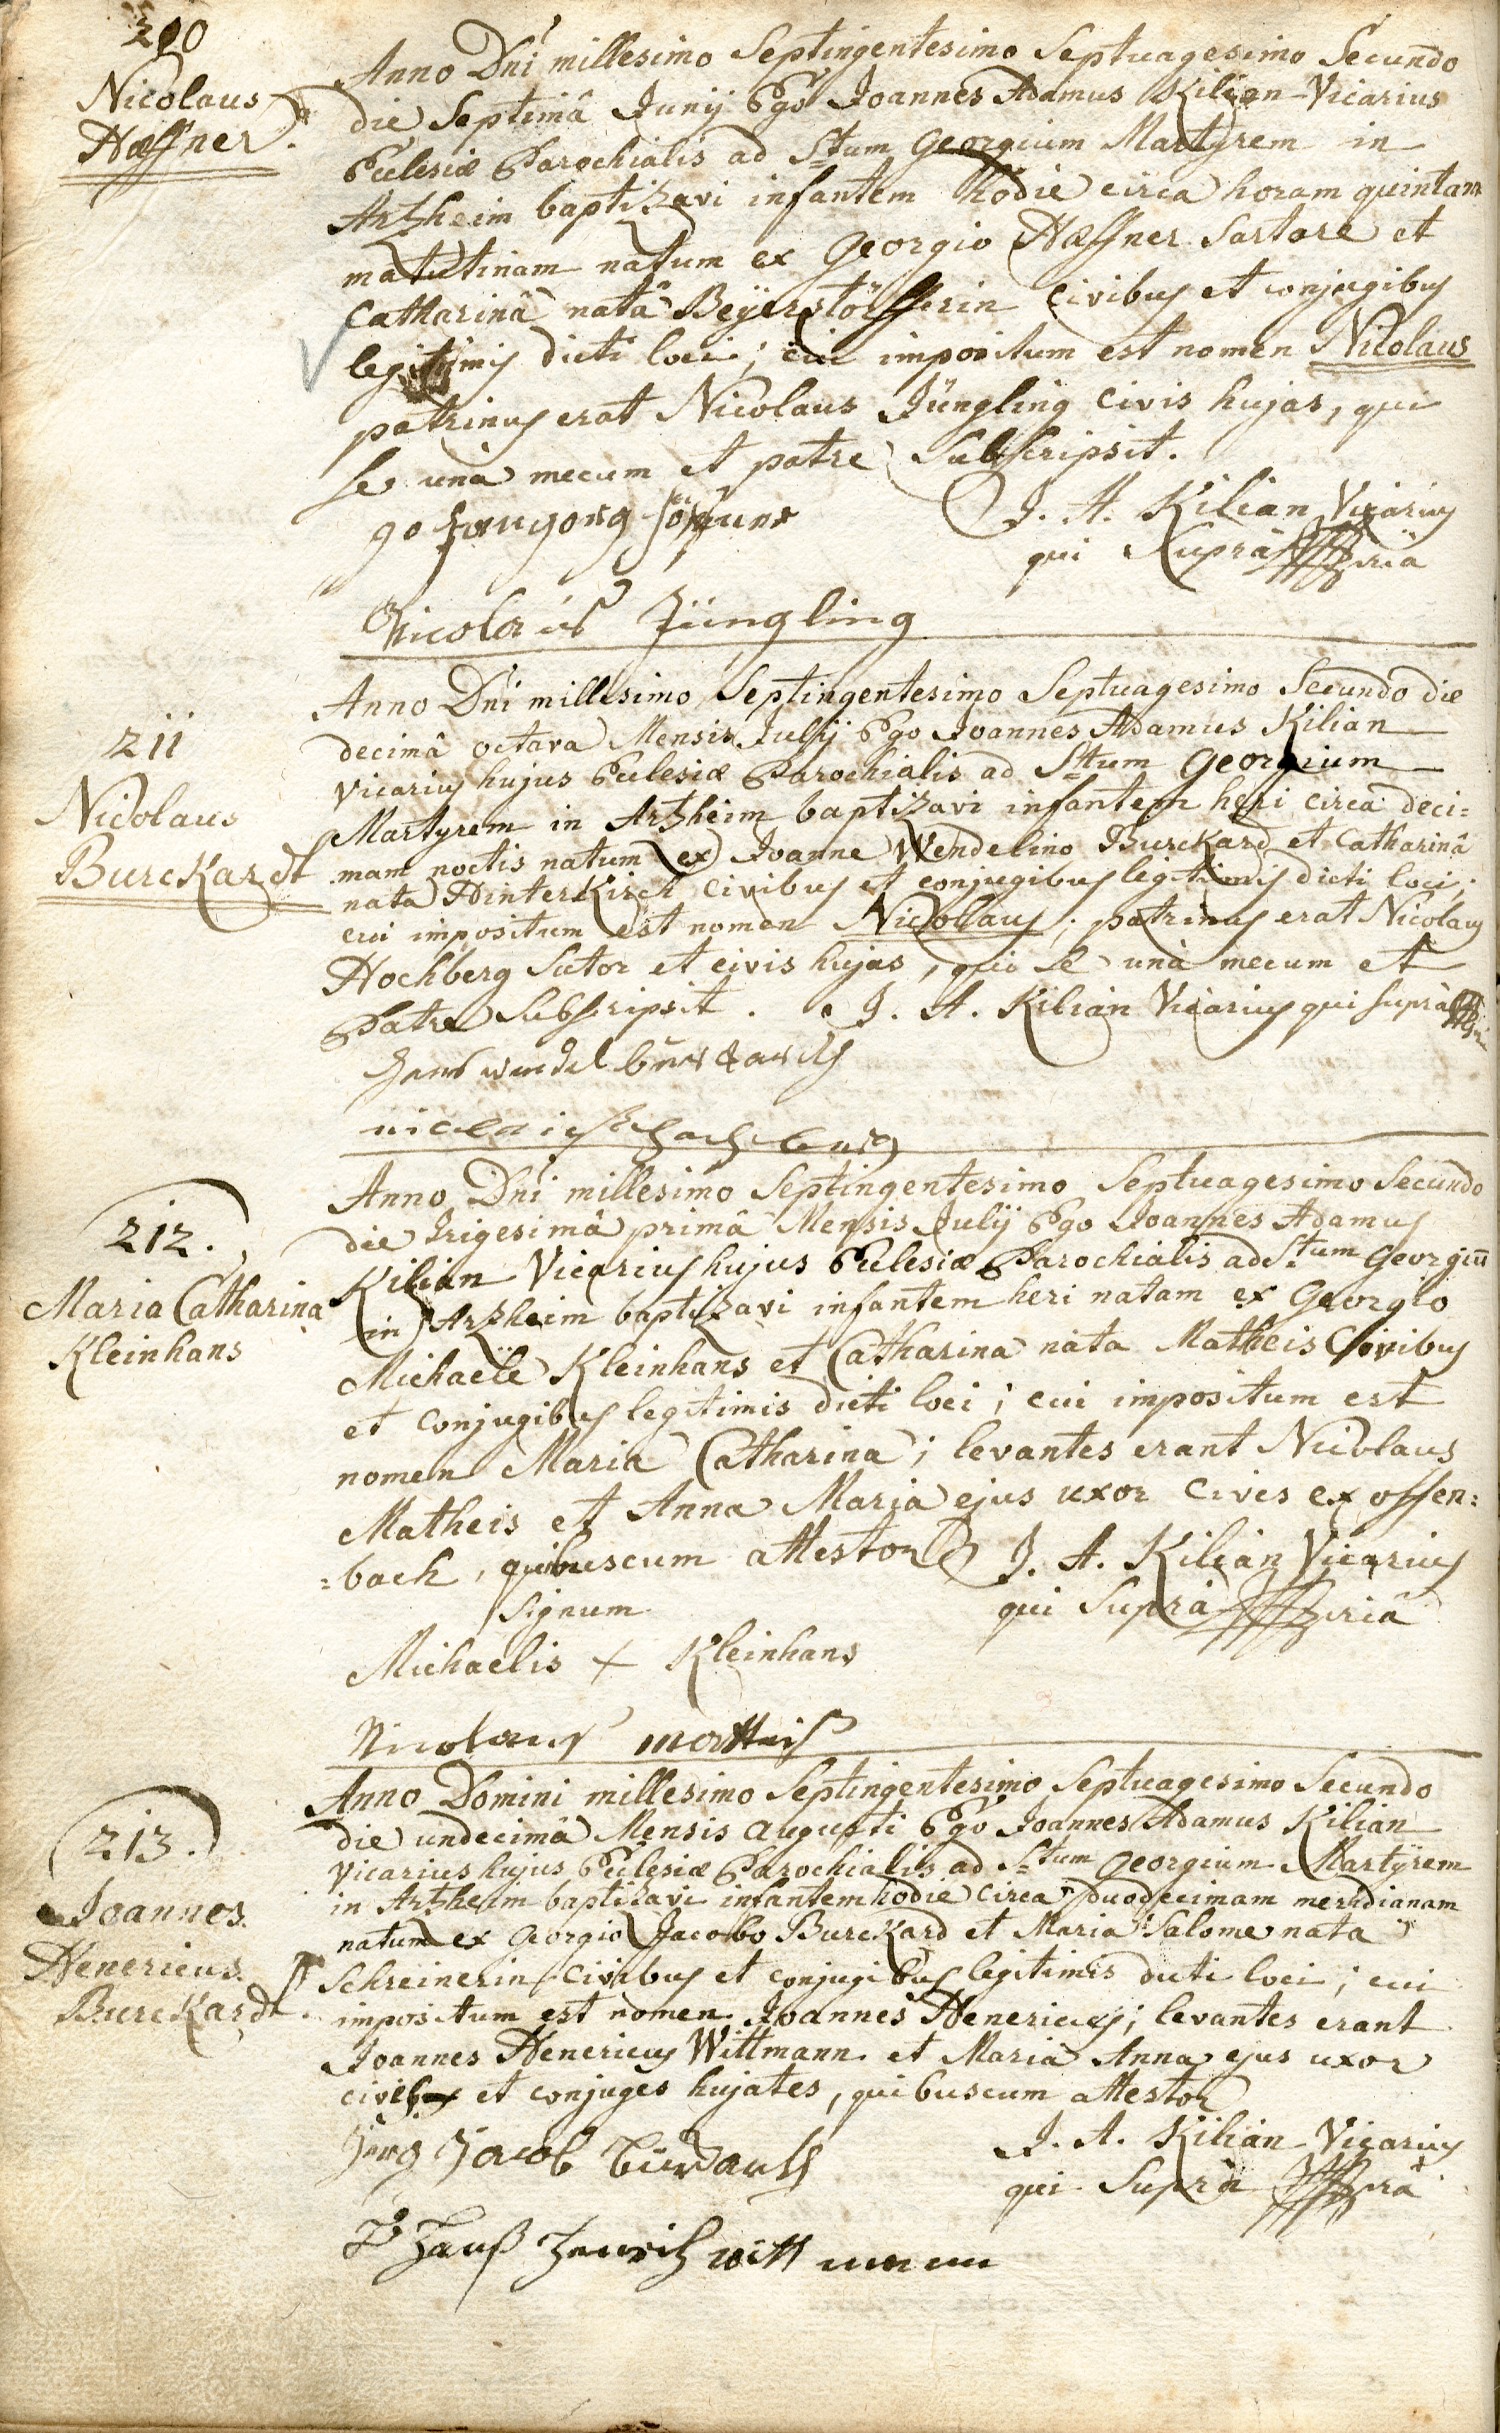 210
Nicolaus
Hæffner.
Anno Dni millesimo Septingentesimo Septuagesimo Secundo
die Septimâ Junij Ego Joannes Adamus Kilian Vicarius
Ecclesiæ Parochialis ad Stum Georgium Martyrem in
Artzheim baptizavi infantem hodie circa horam quintam
matutinam natum ex Georgio Hæffner Sartore et
Catharinâ natâ Beÿerstörfferin Civibus et conjugibus
legitimis dicti loci; cui impositum est nomen Nicolaus
patrinus erat Nicolaus Jüngling Civis hujas, qui
se unà mecum et patre Subscripsit.
J. A. Kilian Vicarius
qui Suprà mpriâ
Nicolaus Jüngling
211
Nicolaus
Burckardt
Anno Dni millesimo Septingentesimo Septuagesimo Secundo die
decimâ octava Mensis Julij Ego Joannes Adamus Kilian
Vicarius hujus Ecclesiæ Parochialis ad Stum Georgium
Martyrem in Artzheim baptizavi infantem heri circa deci=
mam noctis natum ex Joanne Wendelino Burckard et Catharinâ
nata Hinterkirch Civibus et conjugibus legitimis dicti loci;
cui impositum est nomen Nicolaus; patrinus erat Nicolaus
Hochberg Sutor et civis hujas, qui se unà mecum et
Patre Subscripsit. J. A. Kilian Vicarius qui suprà
Hans wendel burckardt
212.
Maria Catharina
Kleinhans
Anno Dni millesimo Septingentesimo Septuagesimo Secundo
die Trigesimâ primâ Mensis Julij Ego Joannes Adamus
Kilian Vicarius hujus Ecclesiæ Parochialis ad Stum Georgiū
in Artzheim baptizavi infantem heri natam ex Georgio
Michaële Kleinhans et Catharina nata Matheis Civibus
et Conjugibus legitimis dicti loci; cui impositum est
nomen Maria Catharina; levantes erant Nicolaus
Matheis et Anna Maria ejus uxor Cives ex offen=
=bach, quibuscum attestor J. A. Kilian Vicarius
Signum qui Suprà mpriâ
Michaelis + Kleinhans
Nicolaus Matteis
213.
Joannes
Henericus
Burckardt.
Anno Domini millesimo Septingentesimo Septuagesimo Secundo
die undecimâ Mensis Augusti Ego Joannes Adamus Kilian
Vicarius hujus Ecclesiæ Parochialis ad Stum Georgium Martÿrem
in Artzheim baptizavi infantem hodie circa duodecimam meridianam
natum ex Georgio Jacobo Burckard et Maria Salome nata
Schreinerin Civibus et conjugibus legitimis dicti loci; cui
impositum est nomen Joannes Henericus; levantes erant
Joannes Henericus Wittmann et Maria Anna ejus uxor
cives et conjuges hujates, quibuscum attestor
Jerg Jacob Burckardt
J. A. Kilian Vicarius
qui Suprà mpriâ
Hanß Henrich wittmann